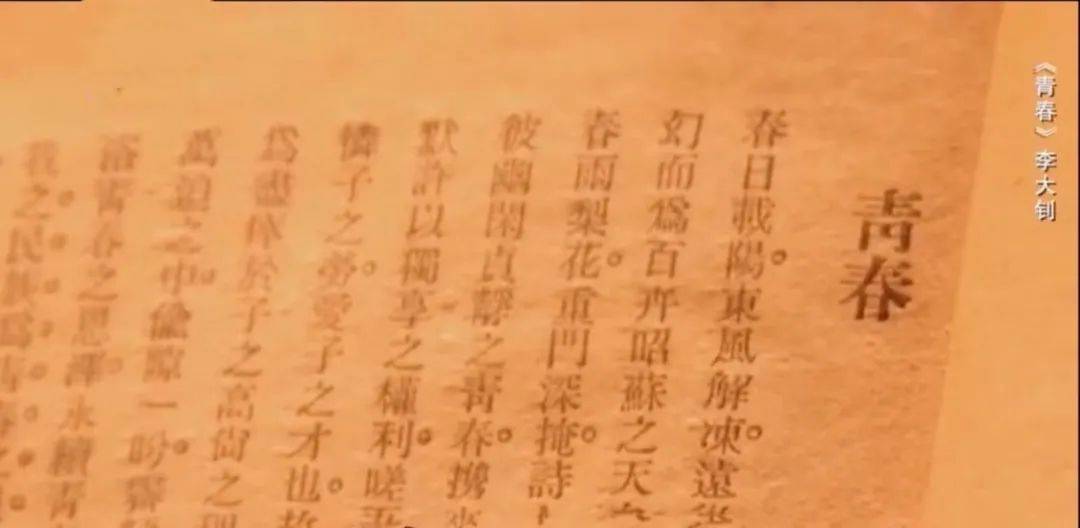 《青春》李大钊
青春
春日載陽。東風解凍。遠
幻而爲百卉昭蘇之天
春雨梨花。重門深掩。詩
彼幽閑貞靜之青春。攜
默許以獨享之權利。嗟吾
憐子之勞。愛子之才也。
爲盡瘁於子之高尙之理
萬之中。一盻。霽
浴青春之恩澤。永續青
我之民族爲青春之